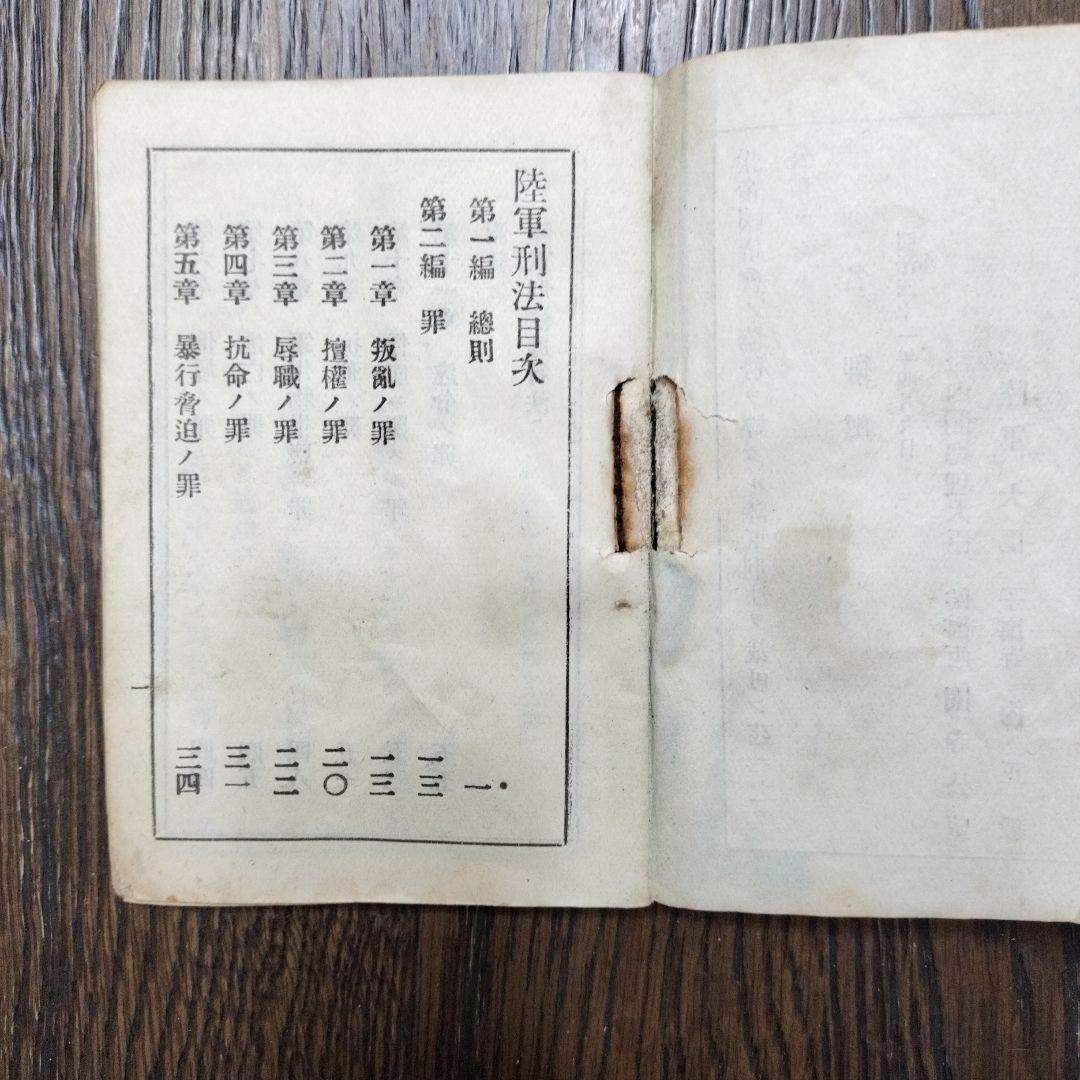 陸軍刑法目次
第一編 總則 一
第二編 罪 一三
第一章 叛亂ノ罪 一三
第二章 擅權ノ罪 二〇
第三章 辱職ノ罪 二二
第四章 抗命ノ罪 三一
第五章 暴行脅迫ノ罪 三四
一